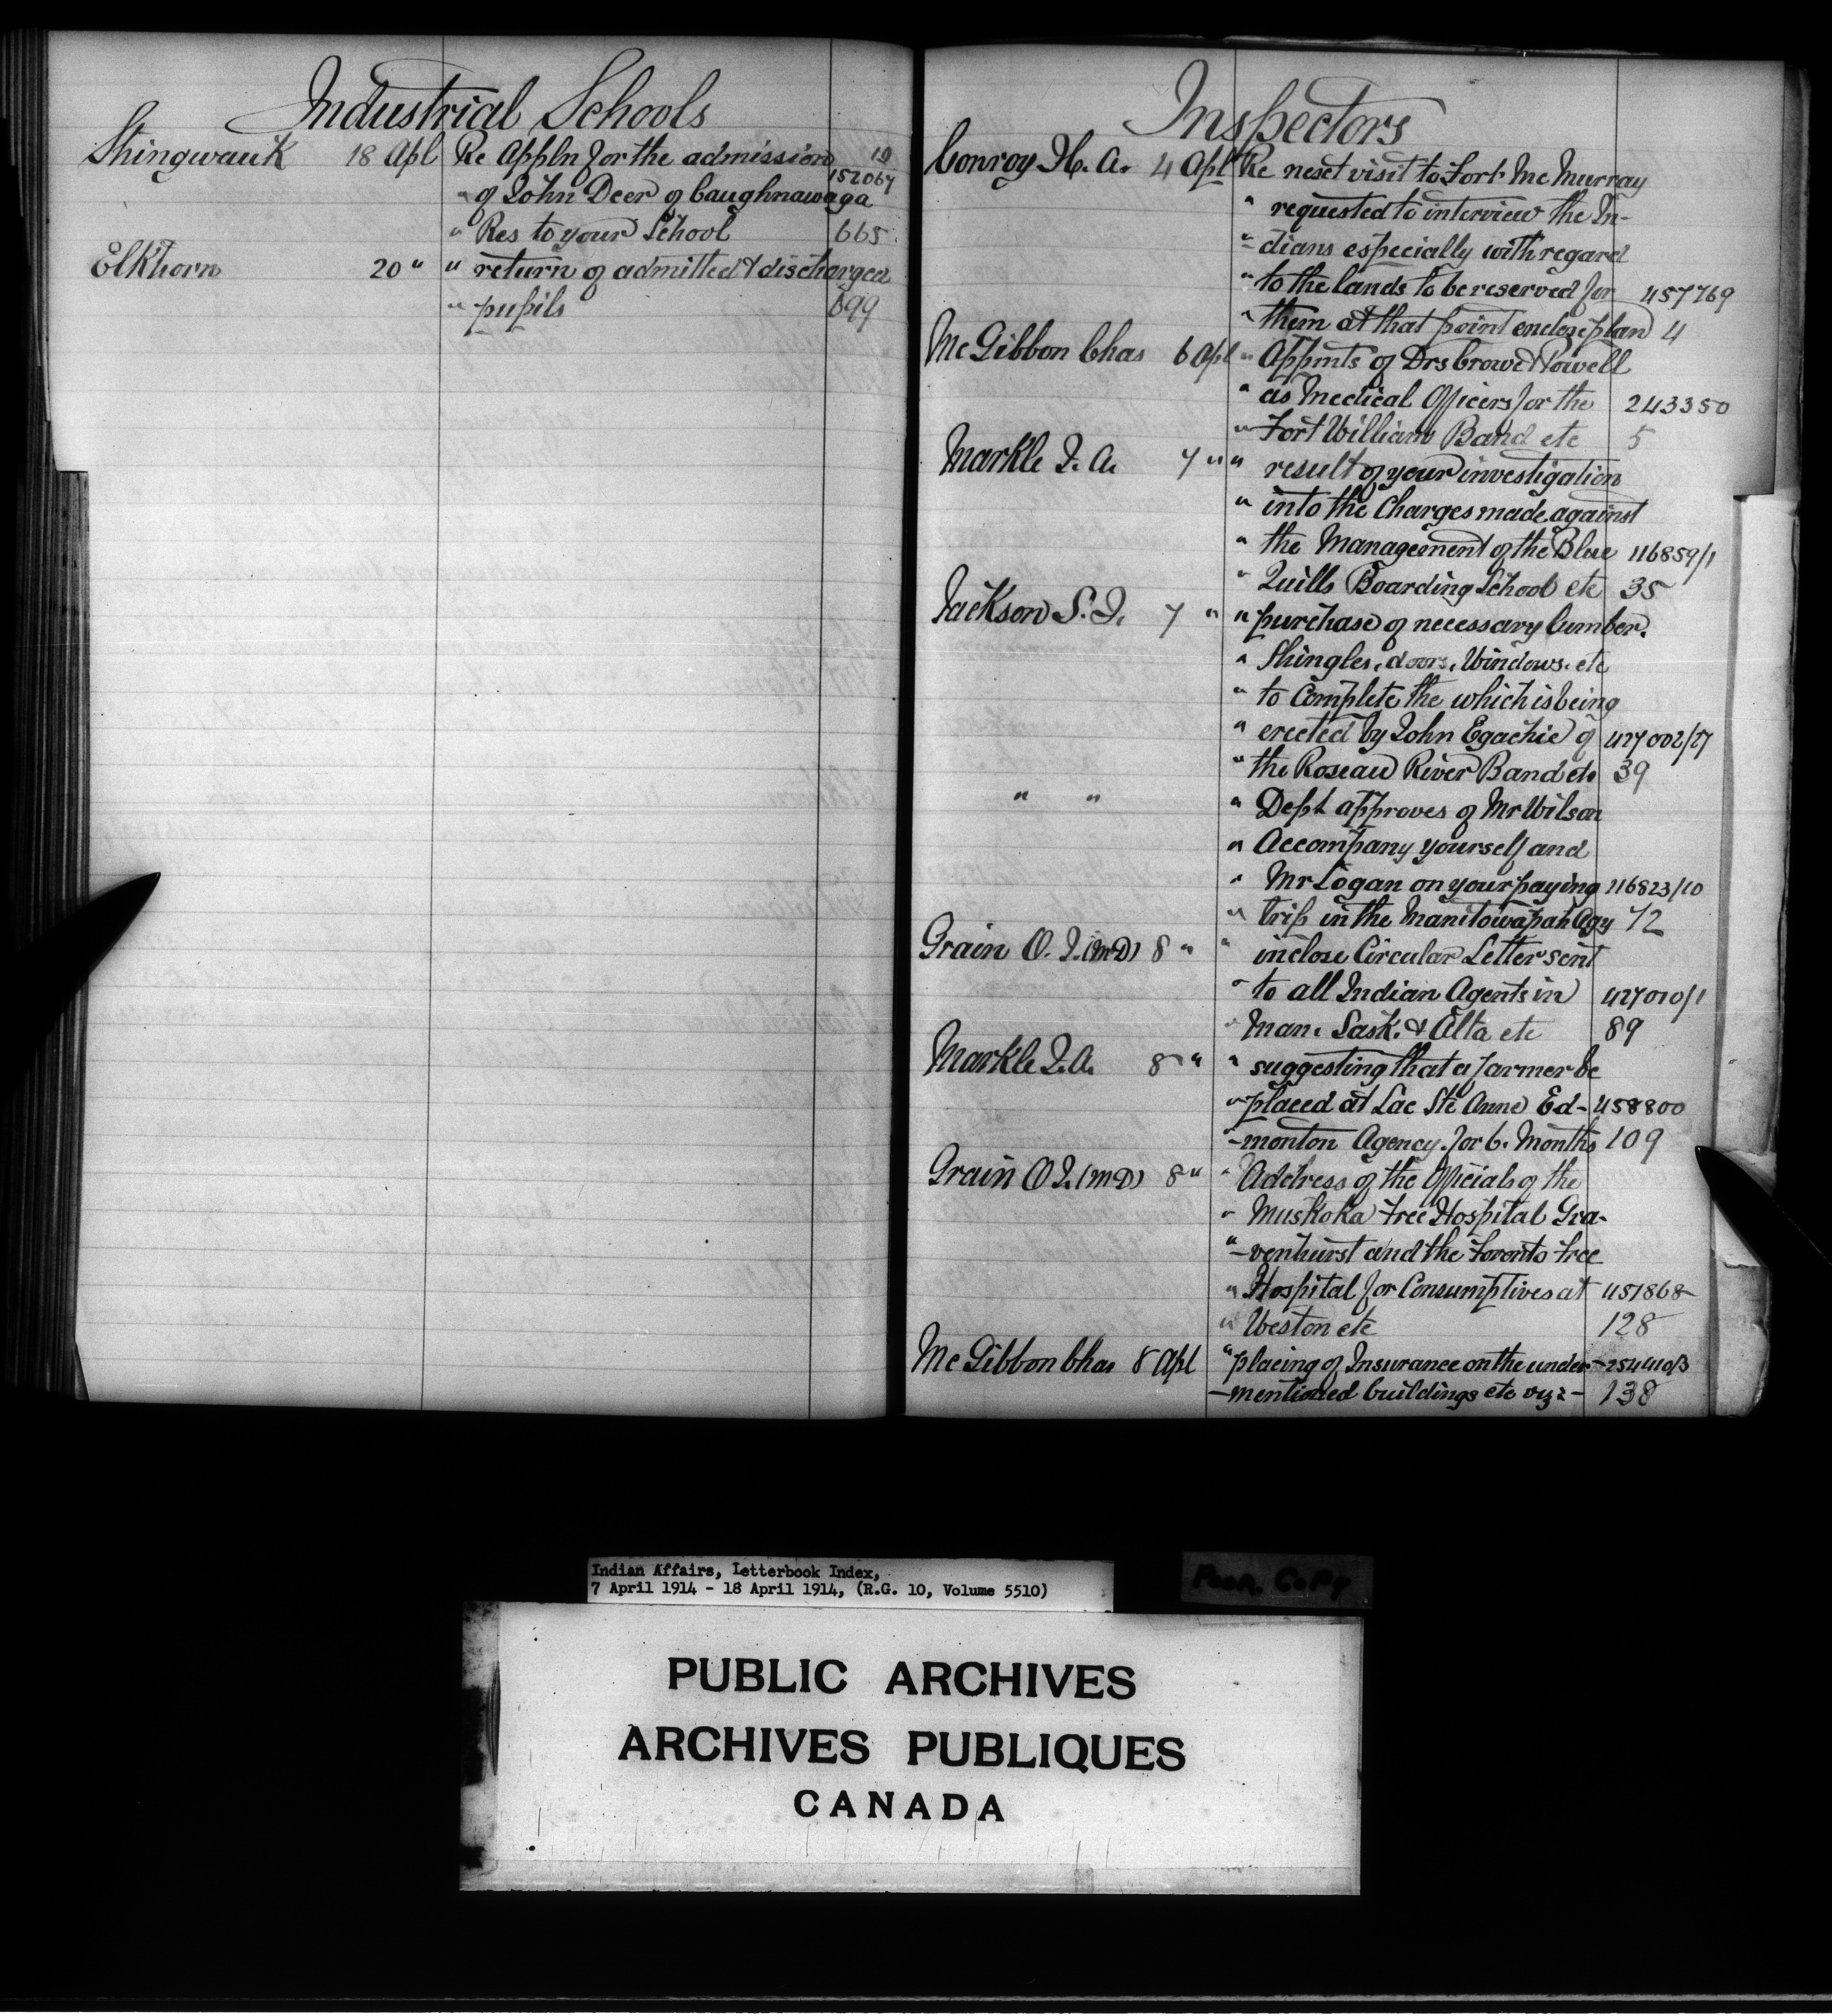 Industrial Schools
Shingwauk 18 Apl Re Appln for the admission 10
152067
" of John Deer of Caughnawaga
" Res to your School 665
Elkhorn 20 " " return of admitted & discharged
" pupils 699
Inspectors
Conroy H. A. 4 Apl Re next visit to Fort Mc Murray
" requested to interview the In-
" dians especially with regard
" to the lands to be reserved for 457769
" them at that point enclose plan 4
Mc Gibbon Chas 6 Apl " Appmts of Drs Crowe & Powell
" as Medical Officers for the 243350
" Fort William Band etc 5
Markle J. A. 7 " " result of your investigation
" into the Charges made against
" the Management of the Blue 116859/1
" Quills Boarding School etc 35
Jackson S. J. 7 " " purchase of necessary lumber.
" Shingles, doors, Windows. etc
" to Complete the which is being
" erected by John Egachie of 427002/27
" the Roseau River Band etc 39
" " " Dept approves of Mr Wilson
" Accompany yourself and
" Mr Logan on your paying 116823/10
" trip in the Manitowapah Agy 72
Grain O. J. (MD) 8 " " inclose Circular Letter sent
" to all Indian Agents in 427010/1
" Man. Sask. & Alta etc 89
Markle J. A. 8 " " suggesting that a farmer be
" placed at Lac Ste Anne Ed- 458800
" -monton Agency. for 6. Months 109
Grain O J. (MD) 8 " " Address of the Officials of the
" Muskoka Free Hospital Gra-
" -venhurst and the Toronto Free
" Hospital for Consumptives at 451868
" Weston etc 128
Mc Gibbon Chas 8 Apl " placing of Insurance on the under- 254410/3
-mentioned buildings etc viz :- 138
Indian Affairs, Letterbook Index,
7 April 1914 - 18 April 1914, (R.G. 10, Volume 5510)
Poor. Copy
PUBLIC ARCHIVES
ARCHIVES PUBLIQUES
CANADA